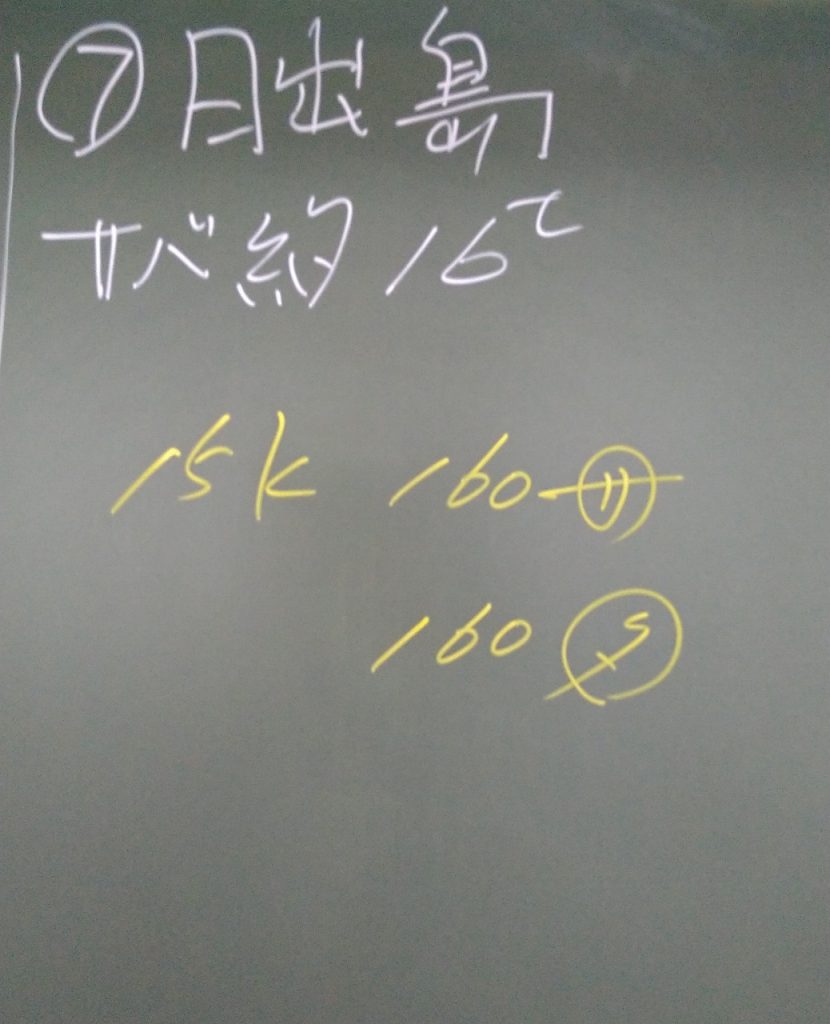 ⑦日出島
サバ約16t
15k 160
160